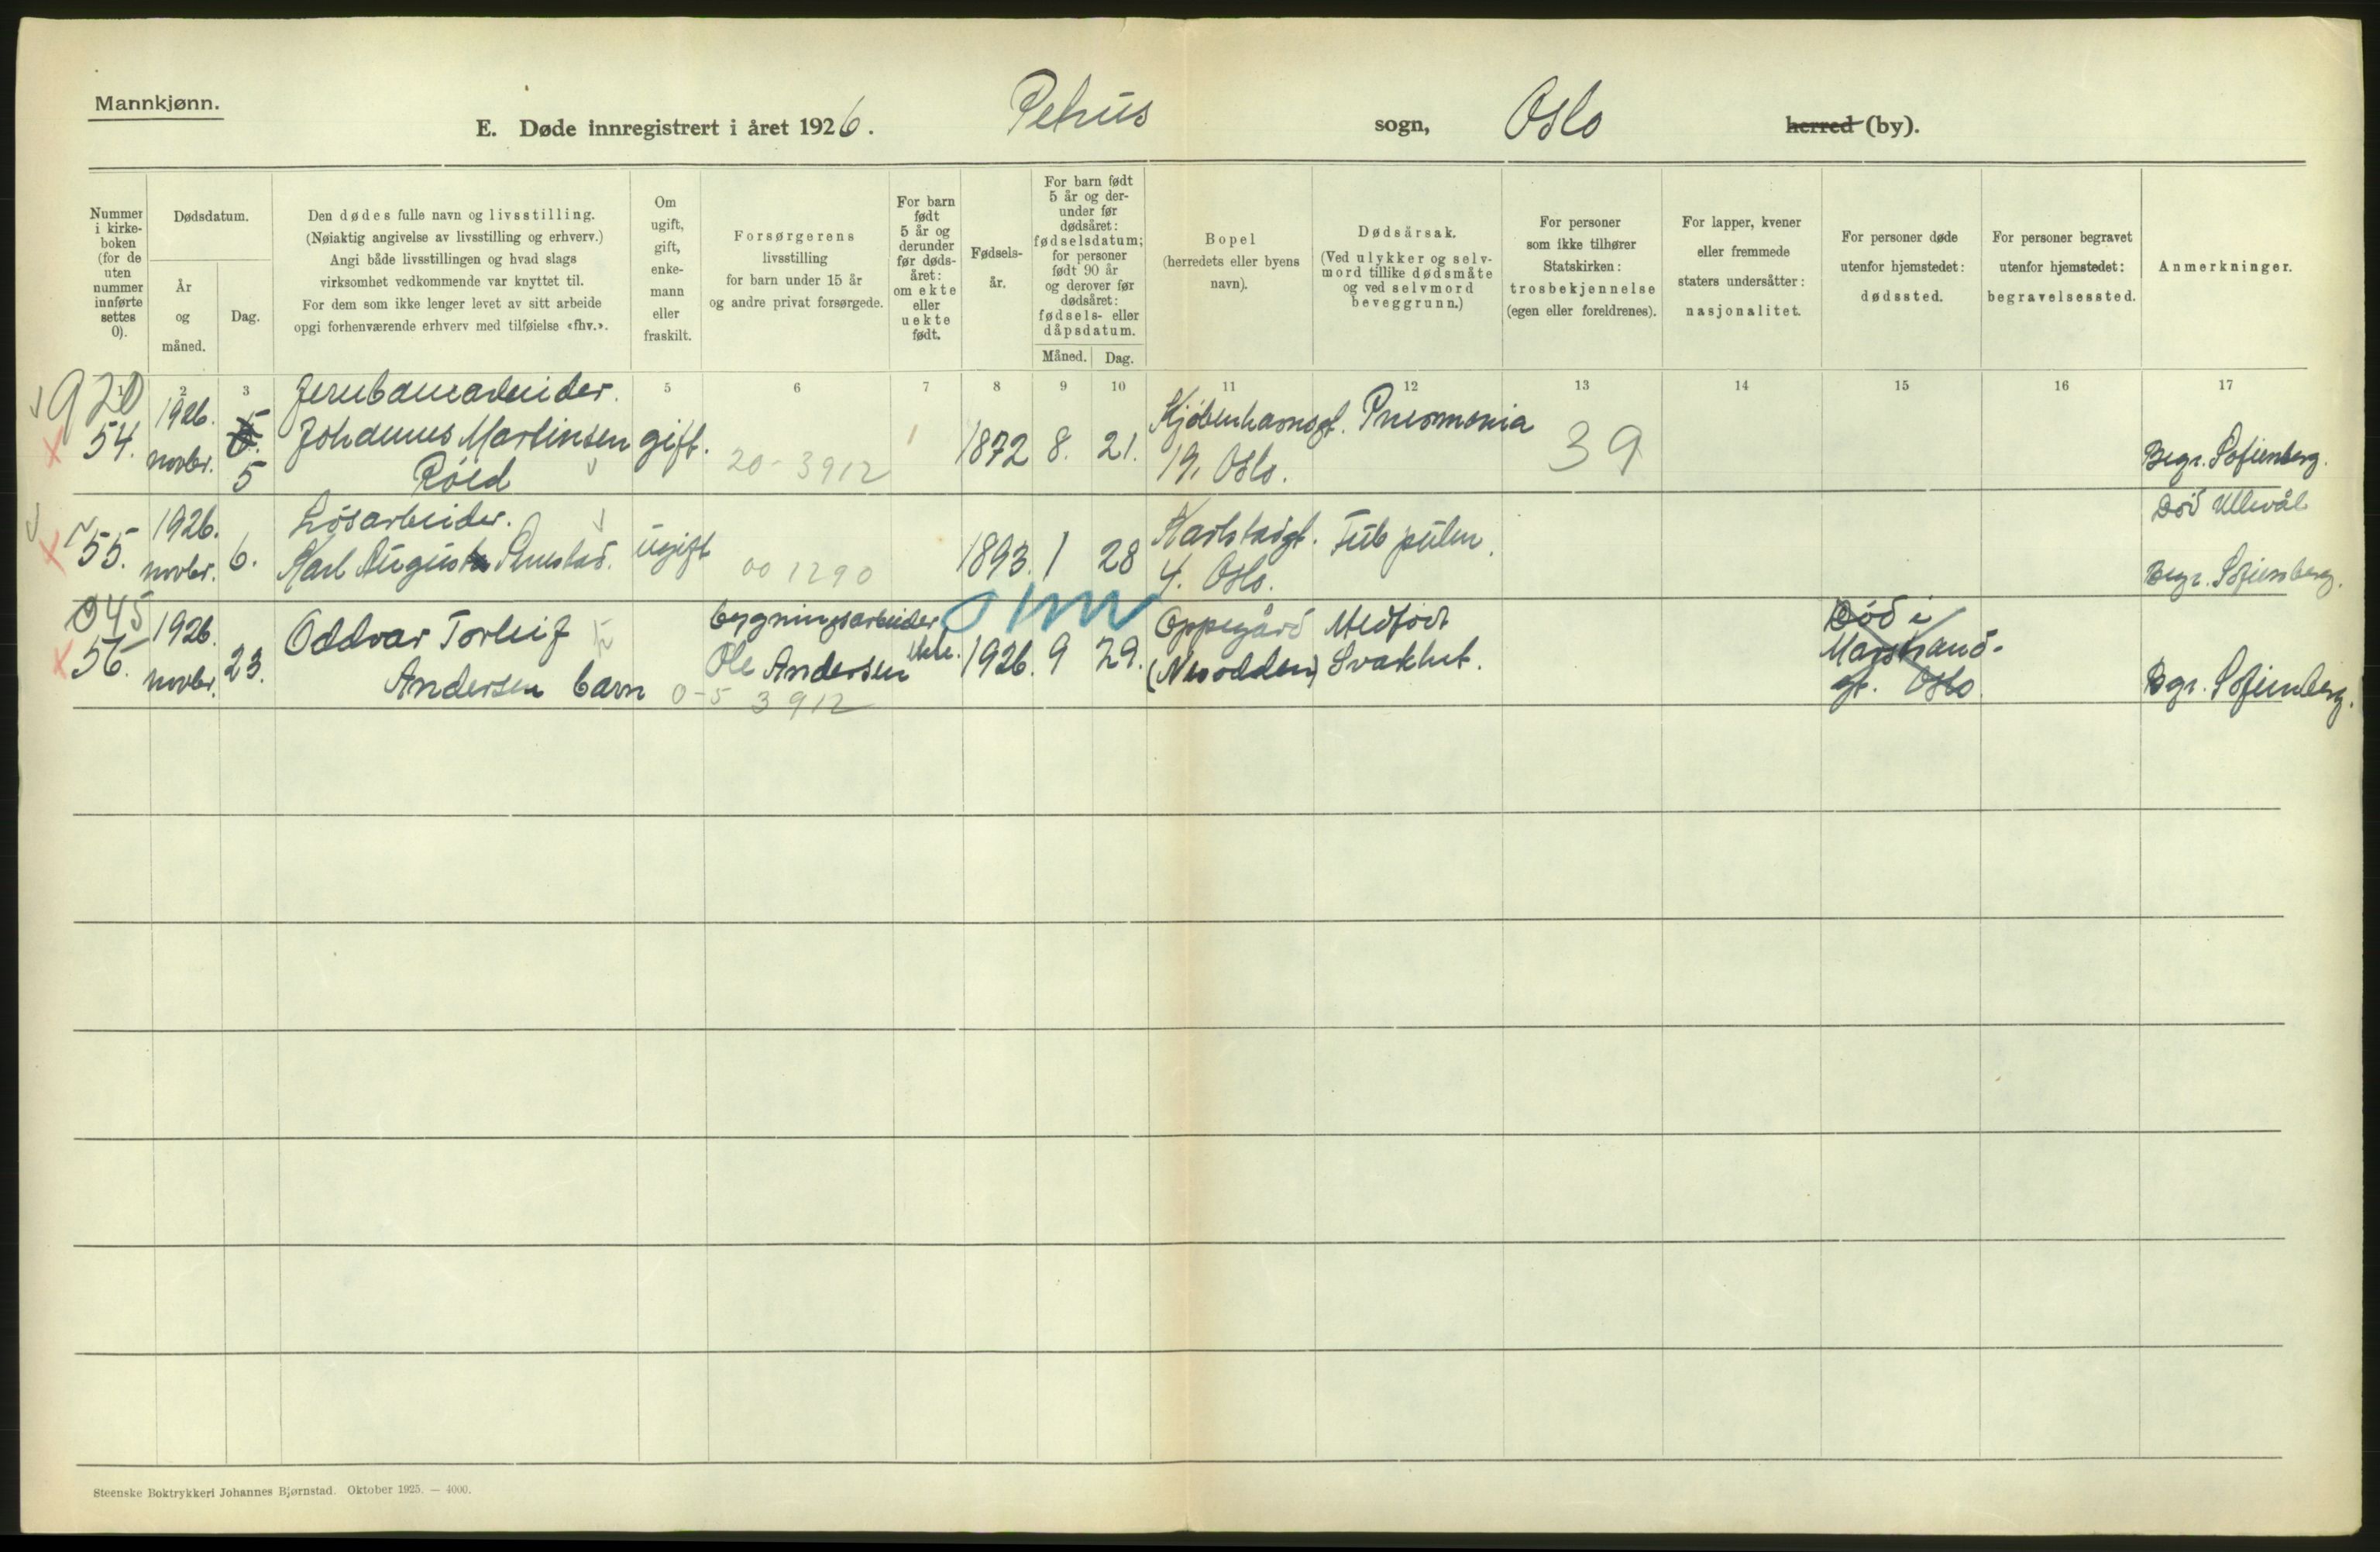 Mannkjønn.
E. Døde innregistrert i året 1926. Petrus sogn, Oslo herred (by).
Nummer i kirke-boken (for de uten nummer innførte settes 0).
Dødsdatum.
År og måned.
Dag.
Den dødes fulle navn og livsstilling.
(Nøiaktig angivelse av livsstilling og erhverv.)
Angi både livsstillingen og hvad slags
virksomhet vedkommende var knyttet til.
For dem som ikke lenger levet av sitt arbeide
opgi forhenværende erhverv med tilføielse «fhv.».
Om ugift, gift, enke-mann eller fraskilt.
Forsørgerens
livsstilling
for barn under 15 år
og andre privat forsørgede.
For barn født 5 år og derunder før døds-året: om ekte eller uekte født.
Fødsels-år.
For barn født 5 år og der-under før dødsåret: fødselsdatum; for personer født 90 år og derover før dødsåret: fødsels- eller dåpsdatum.
Måned. Dag.
Bopel
(herredets eller byens
navn).
Dødsårsak.
(Ved ulykker og selv-
mord tillike dødsmåte
og ved selvmord
beveggrunn.)
For personer
som ikke tilhører
Statskirken:
trosbekjennelse
(egen eller foreldrenes).
For lapper, kvener
eller fremmede
staters undersåtter:
nasjonalitet.
For personer døde
utenfor hjemstedet:
dødssted.
For personer begravet
utenfor hjemstedet:
begravelsessted.
Anmerkninger.
2 3 5 6 7 8 9 10 11 12 13 14 15 16 17
920
54. 1926. novbr. 5
Jernbanearbeider.
Johannes Martinsen
Røed
gift. 20-3912 1872 8. 21.
Kjøbenhavnsgt.
19, Oslo.
Pneumonia
39
Begr. Sofienberg.
55. 1926. novbr. 6.
Løsarbeider.
Karl August
ugift 001290 1893. 1 28
Karlstadgt.
4. Oslo.
Tub pulm.
Død Ullevål
Begr. Sofienberg.
045
56. 1926. novbr. 23.
Oddvar Torleif
Andersen barn
0-5 3912
bygningsarbeider
Ole Andersen
ekte. 1926. 9 29.
Oppegård
(Nesodden)
Medfødt
Svakhet.
Død i
Marstrand-
gt. Oslo.
Bgr. Sofienberg.
Steenske Boktrykkeri Johannes Bjørnstad. Oktober 1925. — 4000.